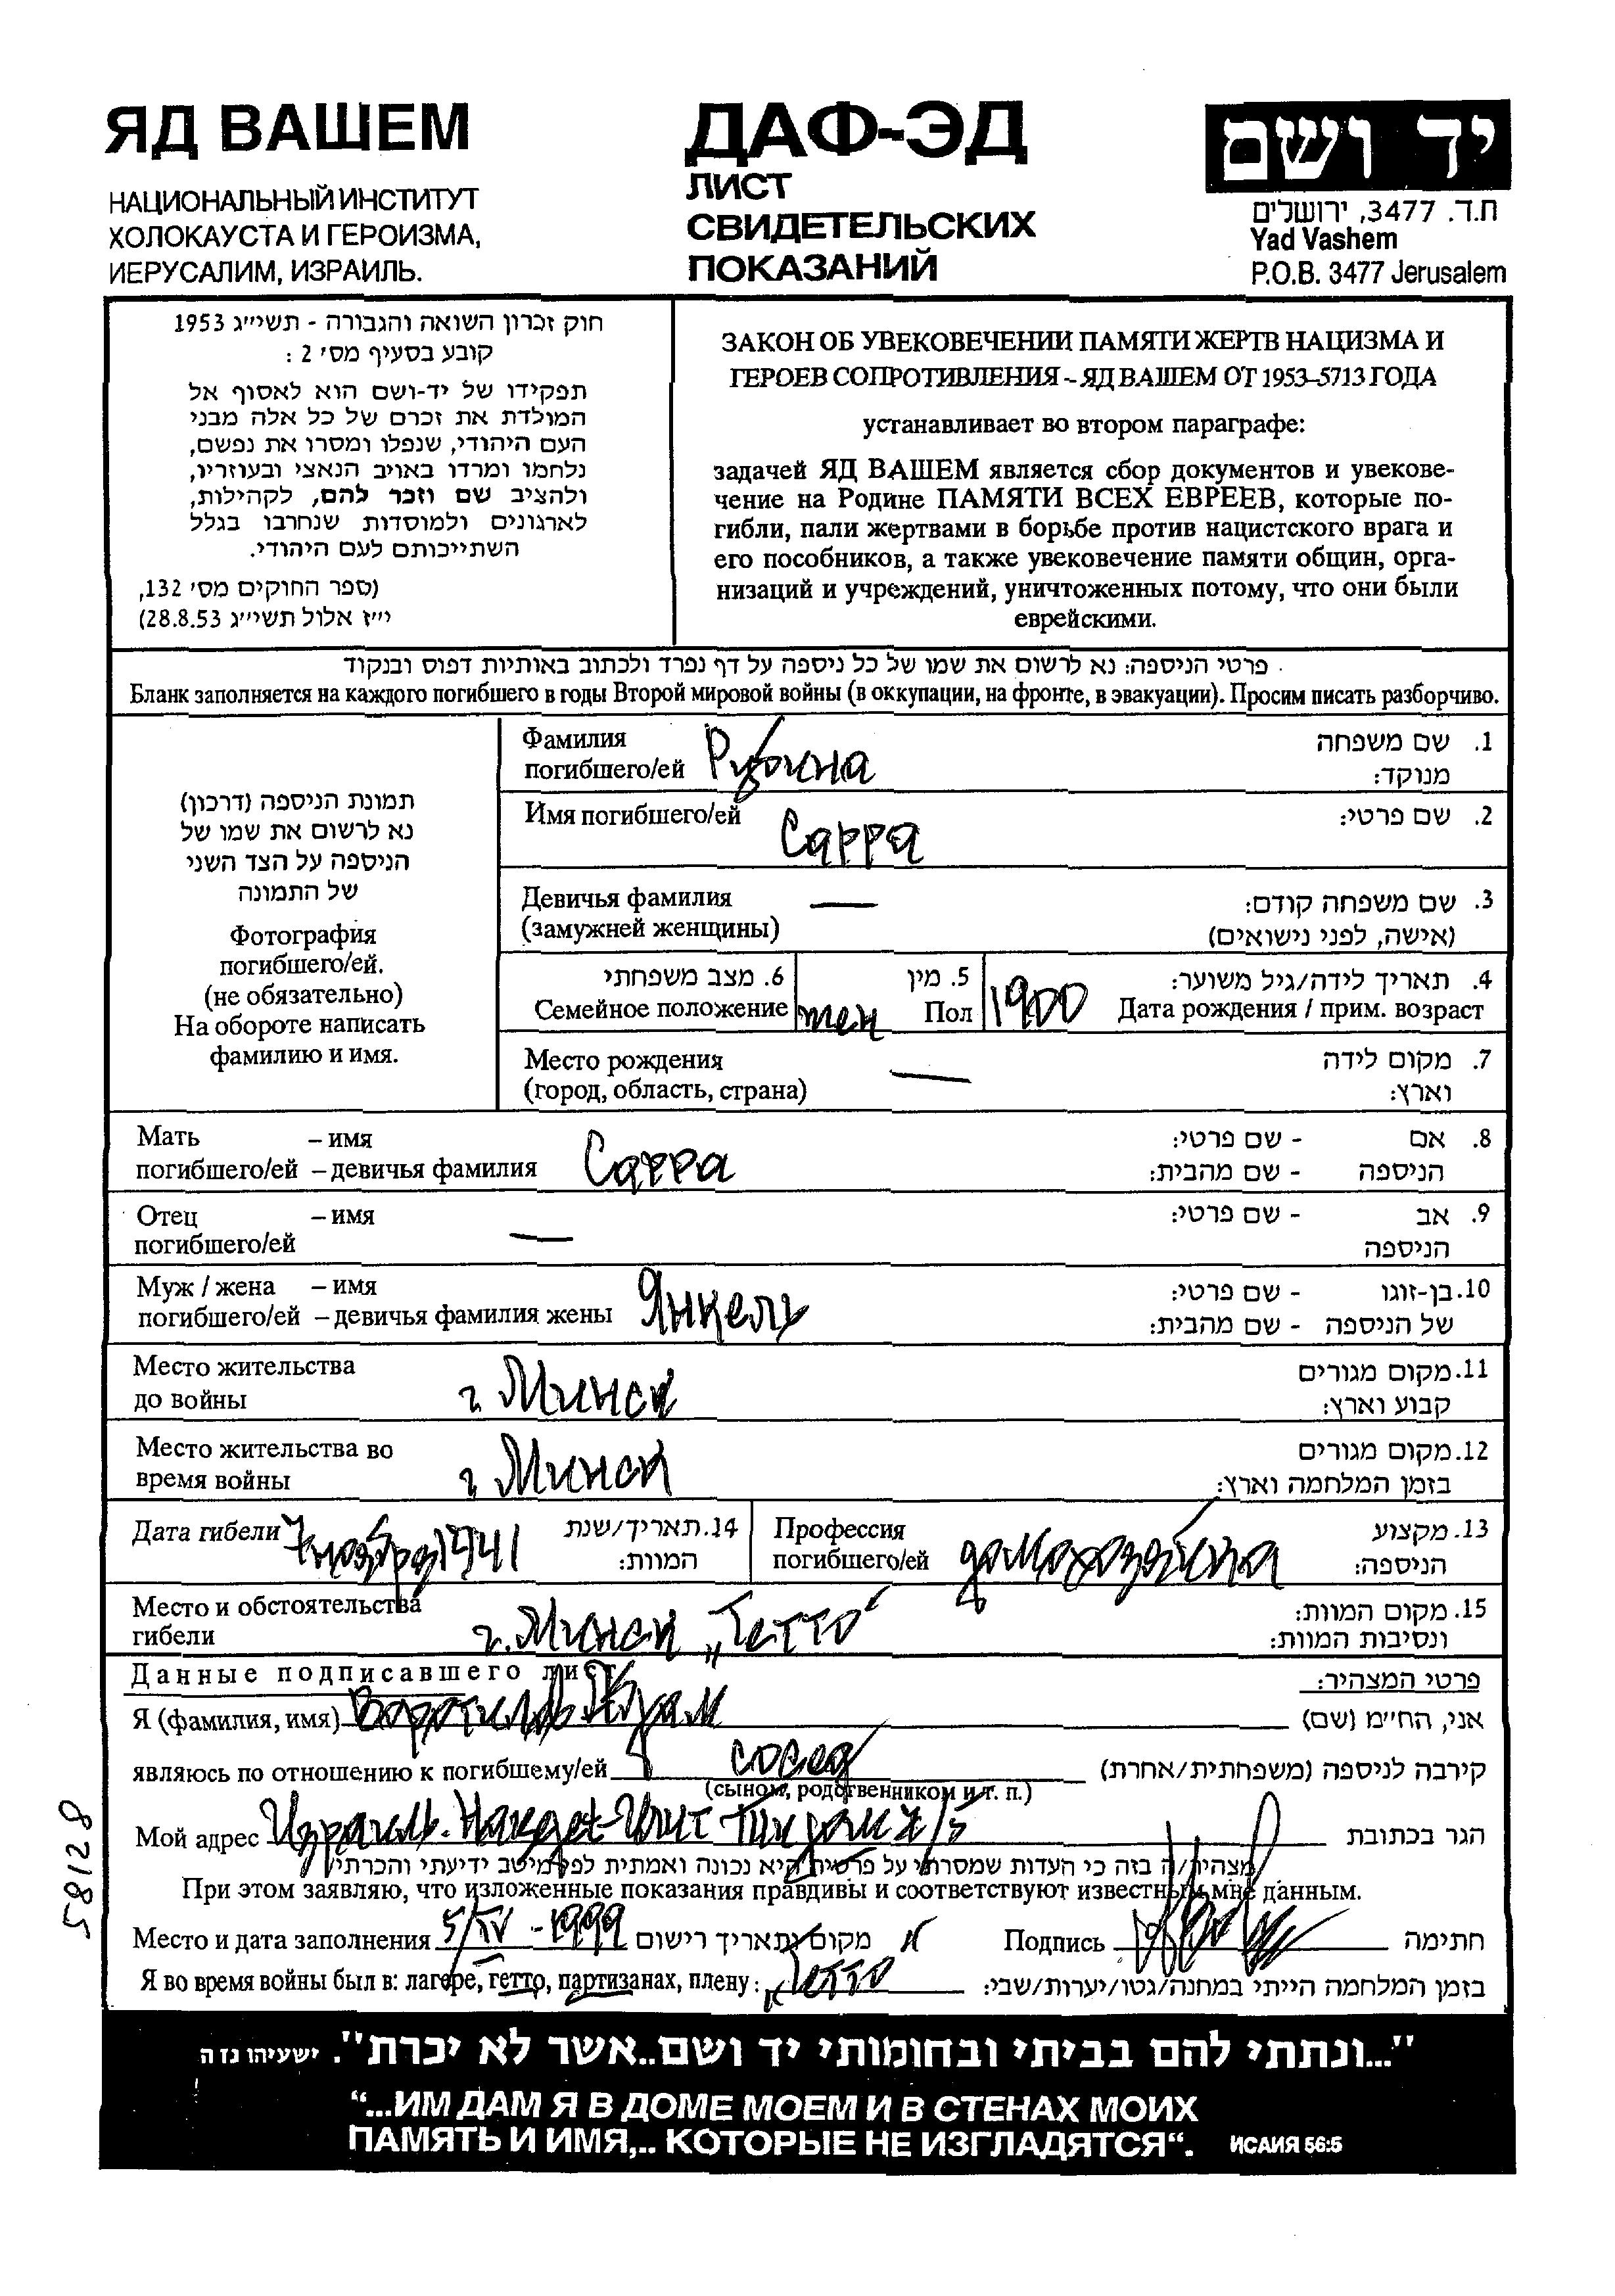 ЯД ВАШЕМ
НАЦИОНАЛЬНЫЙ ИНСТИТУТ
ХОЛОКАУСТА И ГЕРОИЗМА,
ИЕРУСАЛИМ, ИЗРАИЛЬ.
ДАФ-ЭД
ЛИСТ
СВИДЕТЕЛЬСКИХ
ПОКАЗАНИЙ
יד ושם
ת.ד. 3477, ירושלים
Yad Vashem
P.O.B. 3477 Jerusalem
חוק זכרון השואה והגבורה - תשי״ג 1953
קובע בסעיף מס׳ 2 :
תפקידו של יד-ושם הוא לאסוף אל
המולדת את זכרם של כל אלה מבני
העם היהודי, שנפלו ומסרו את נפשם,
נלחמו ומרדו באויב הנאצי ובעוזריו,
ולהציב שם וזכר להם, לקהילות,
לארגונים ולמוסדות שנחרבו בגלל
השתייכותם לעם היהודי.
(ספר החוקים מס׳ 132,
י״ז אלול תשי״ג 28.8.53)
ЗАКОН ОБ УВЕКОВЕЧЕНИИ ПАМЯТИ ЖЕРТВ НАЦИЗМА И
ГЕРОЕВ СОПРОТИВЛЕНИЯ – ЯД ВАШЕМ ОТ 1953–5713 ГОДА
устанавливает во втором параграфе:
задачей ЯД ВАШЕМ является сбор документов и увекове-
чение на Родине ПАМЯТИ ВСЕХ ЕВРЕЕВ, которые по-
гибли, пали жертвами в борьбе против нацистского врага и
его пособников, а также увековечение памяти общин, орга-
низаций и учреждений, уничтоженных потому, что они были
еврейскими.
פרטי הניספה: נא לרשום את שמו של כל ניספה על דף נפרד ולכתוב באותיות דפוס ובנקוד
Бланк заполняется на каждого погибшего в годы Второй мировой войны (в оккупации, на фронте, в эвакуации). Просим писать разборчиво.
תמונת הניספה (דרכון)
נא לרשום את שמו של
הניספה על הצד השני
של התמונה
Фотография
погибшего/ей.
(не обязательно)
На обороте написать
фамилию и имя.
Фамилия Рубина 1. שם משפחה
погибшего/ей מנוקד:
Имя погибшего/ей Сарра 2. שם פרטי:
Девичья фамилия — 3. שם משפחה קודם:
(замужней женщины) (אישה, לפני נישואים)
6. מצב משפחתי 5. מין 4. תאריך לידה/גיל משוער:
Семейное положение жен Пол 1900 Дата рождения / прим. возраст
Место рождения — 7. מקום לידה
(город, область, страна) וארץ:
Мать – имя Сарра 8. אם - שם פרטי:
погибшего/ей – девичья фамилия הניספה - שם מהבית:
Отец – имя — 9. אב - שם פרטי:
погибшего/ей הניספה
Муж / жена – имя Янкель 10. בן-זוגו - שם פרטי:
погибшего/ей – девичья фамилия жены של הניספה - שם מהבית:
Место жительства 11. מקום מגורים
до войны г. Минск קבוע וארץ:
Место жительства во 12. מקום מגורים
время войны г. Минск בזמן המלחמה וארץ:
Дата гибели 7 ноября 1941 14. תאריך/שנת המוות:
Профессия погибшего/ей домохозяйка 13. מקצוע הניספה:
Место и обстоятельства 15. מקום המוות:
гибели г. Минск „Гетто“ ונסיבות המוות:
Данные подписавшего лист פרטי המצהיר:
Я (фамилия, имя) אני, הח״מ (שם)
являюсь по отношению к погибшему/ей сосед קירבה לניספה (משפחתית/אחרת)
(сыном, родственником и т. п.)
Мой адрес Израиль. הגר בכתובת
מצהיר/ה בזה כי העדות שמסרתי על פרטיה היא נכונה ואמתית לפי מיטב ידיעתי והכרתי
При этом заявляю, что изложенные показания правдивы и соответствуют известным мне данным.
Место и дата заполнения 5/IV - 1999 מקום ותאריך רישום Подпись חתימה
Я во время войны был в: лагере, гетто, партизанах, плену: „Гетто“ בזמן המלחמה הייתי במחנה/גטו/יערות/שבי:
58128
"...ונתתי להם בביתי ובחומותי יד ושם..אשר לא יכרת". ישעיהו נו ה
“...ИМ ДАМ Я В ДОМЕ МОЕМ И В СТЕНАХ МОИХ
ПАМЯТЬ И ИМЯ,.. КОТОРЫЕ НЕ ИЗГЛАДЯТСЯ“. ИСАИЯ 56:5